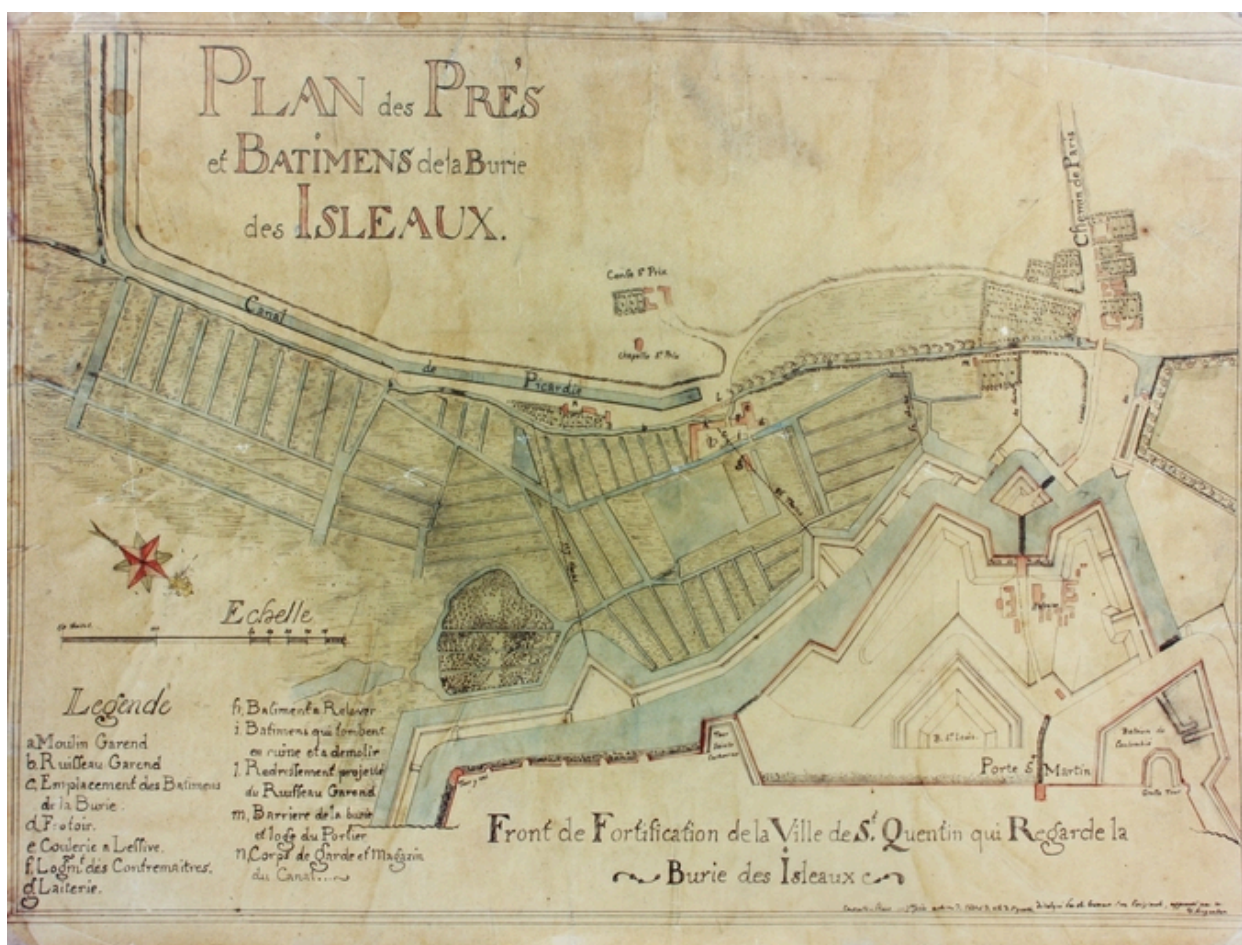 PLAN des PRÉS
et BATIMENS de la Burie
des ISLEAUX.
Chemin de Paris
Cense St Prix
Chapelle St Prix
Canal de Picardie
Echelle
Legende
a Moulin Garend
b. Ruisseau Garend
c, Emplacement des Batimens
de la Burie.
d, Frotoir.
e Coulerie a Lessive.
f. Logmt des Contremaitres.
g Laiterie.
h, Batiment a Relever
i. Batimens qui tombent
en ruine et a demolir
l. Redressement projetté
du Ruisseau Garend
m, Barriere de la burie
et loge du Portier
n, Corps de Garde et Magazin
du Canal.
B. St Louis.
Porte St Martin
Tour Sainte
Catherine
Grosse Tour
Front de Fortification de la Ville de St Quentin qui Regarde la
Burie des Isleaux